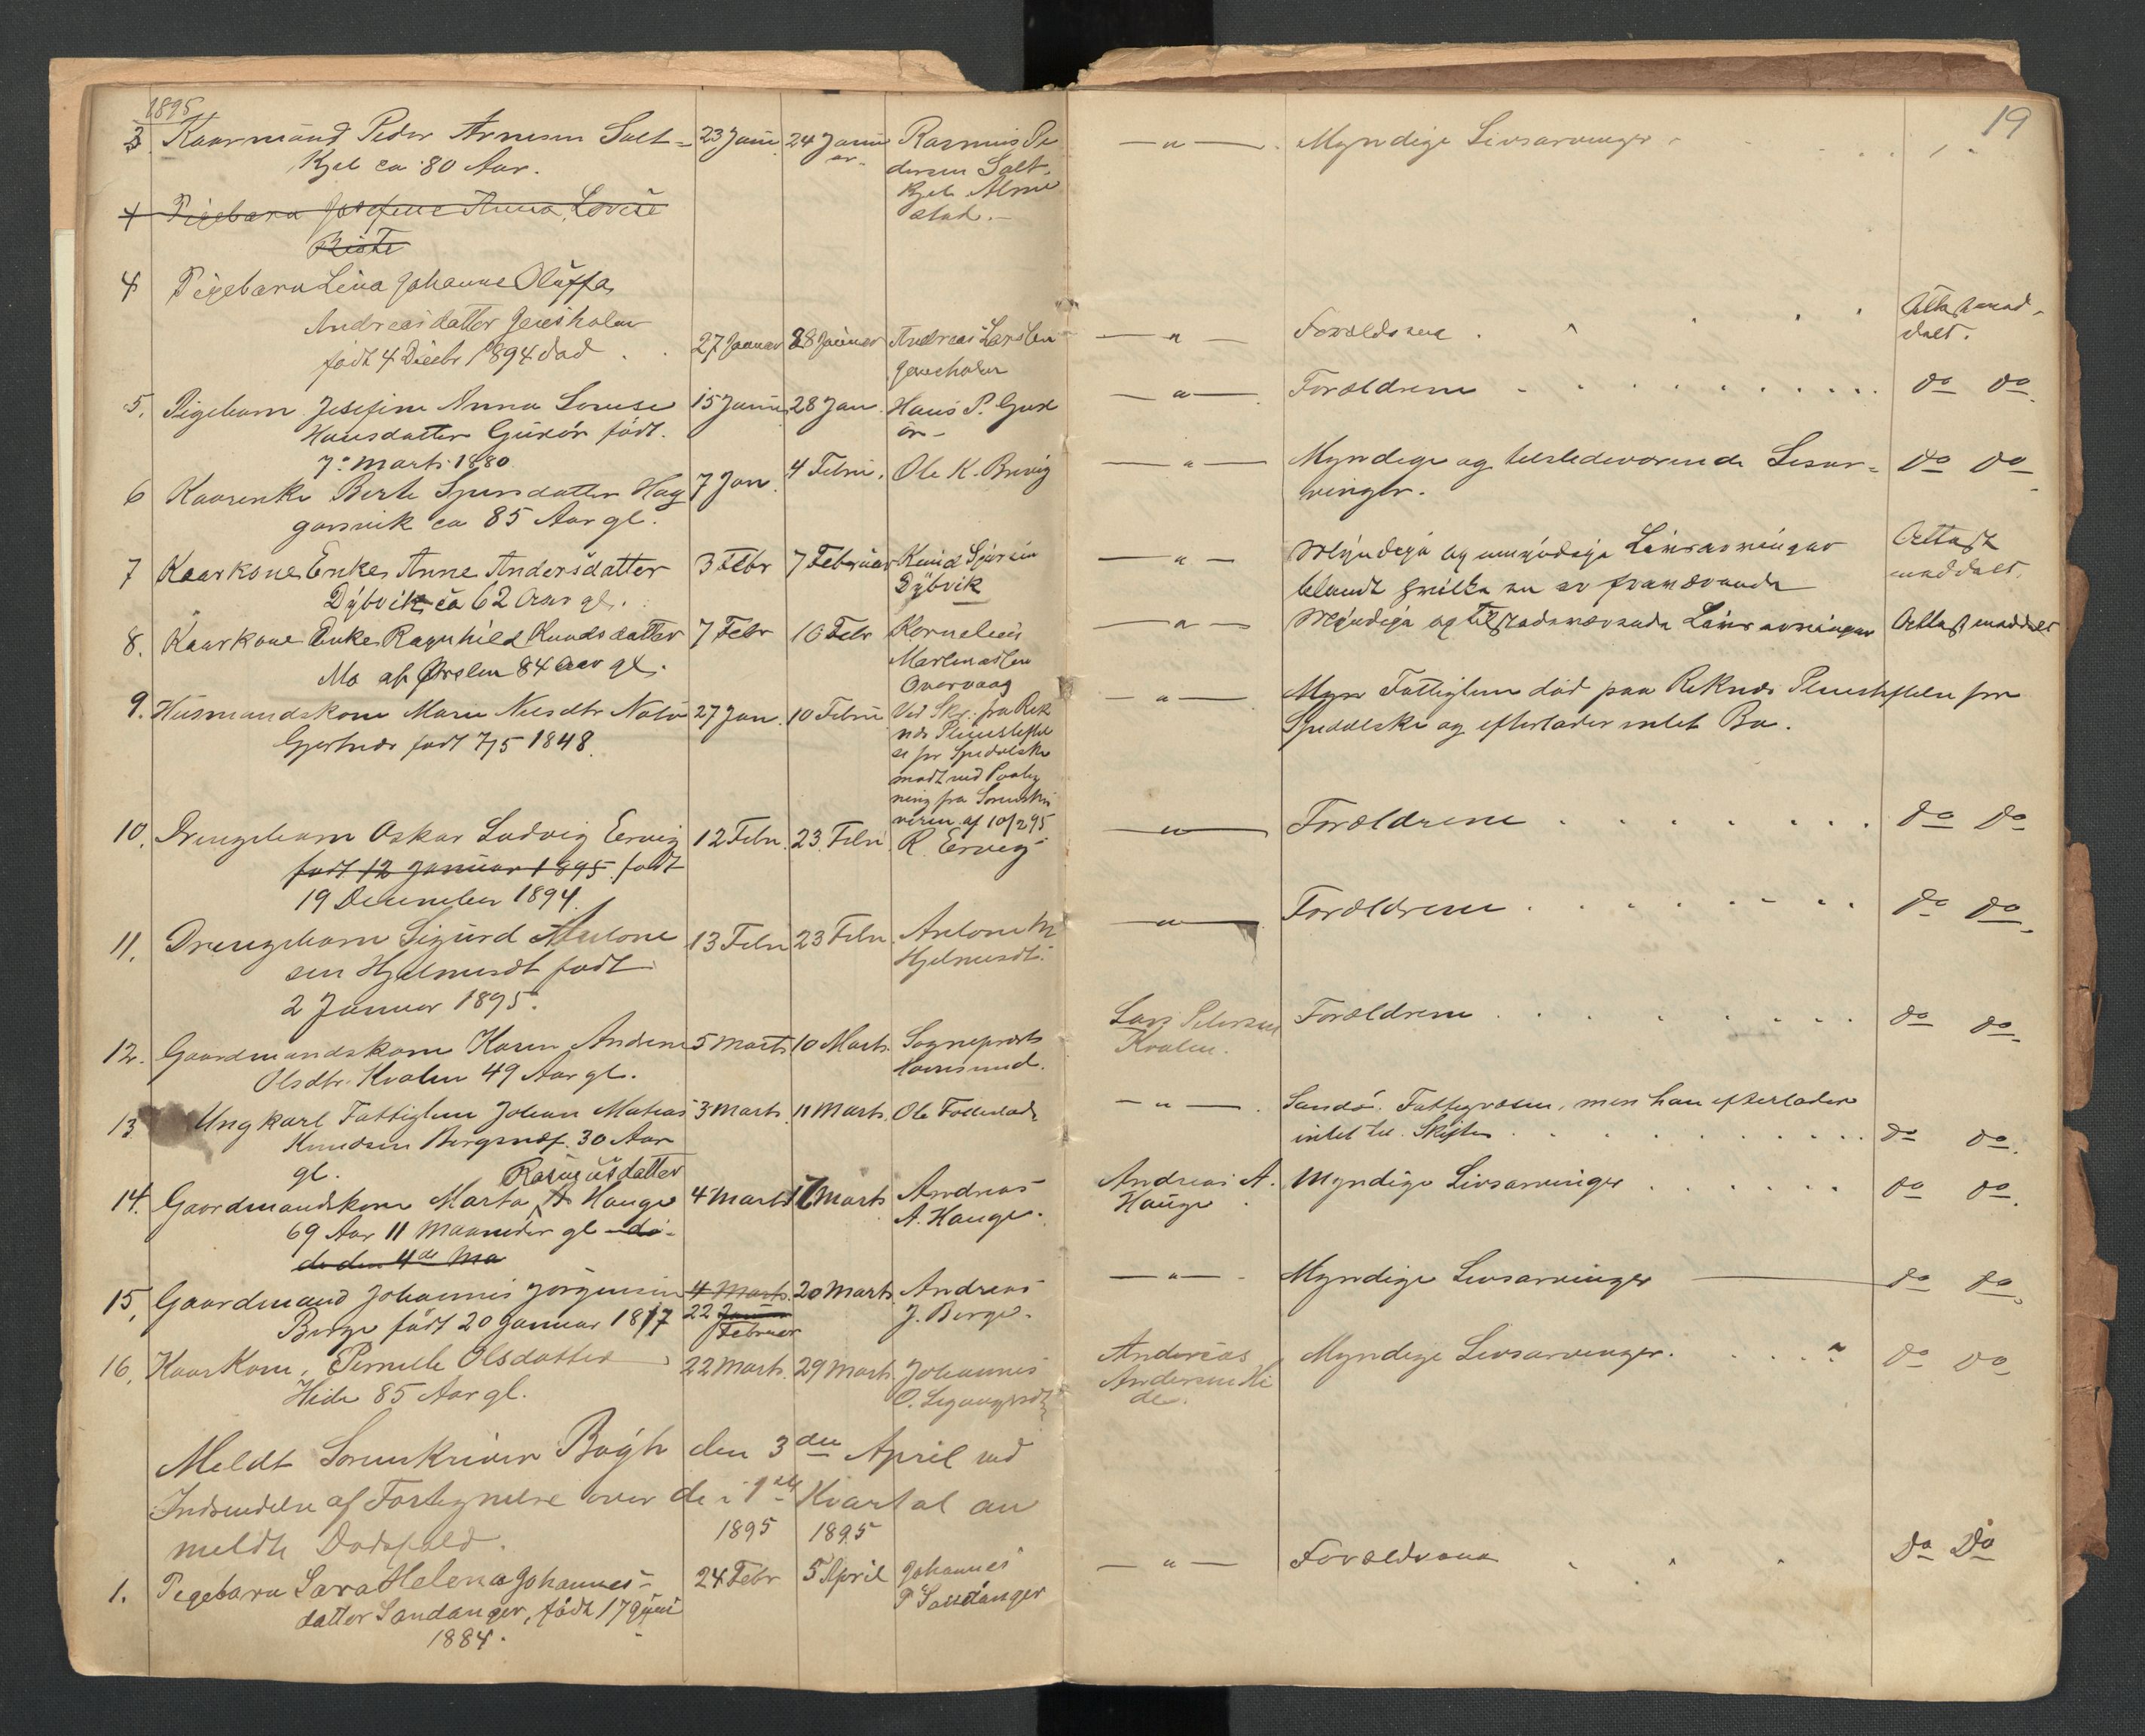 1895
3 Kaarmand Peder Arnesen Salt-
Kjel ca 80 Aar.
23 Janu
24 Janu
ar
Rasmus Pe
dersen Salt
kjel Alme
stad.-
— " — Myndige Livsarvinger
19
4 Pigebarn Josefine Anna Lovise
Riste
4 Pigebarn Lina Johanne Oluffa
Andreasdatter Jensholm
født 4 Decbr 1894 død
27 Januar 28 Januar
Andreas Larsen
Jensholm
— " — Forældrene
Attest med-
delt.
5. Pigebarn Josefine Anna Lovise
Hansdatter Gurør født.
7de Marts 1880
15 Januar 28 Jan.
Hans P. Gur
ør
— " — Forældrene do do
6 Kaarenke Berte Sjursdatter Hag
garsvik ca 85 Aar gl.
7 Jan. 4 Febru. Ole K. Brevig
— " — Myndige og tilstedeværende Livsar-
vinger.
do do
7 Kaarkone Enke Anne Andersdatter
Dybvik ca 62 Aar gl.
3 Febr 7 Februar
Knud Sjursen
Dybvik
— " — Myndige og umyndige Livsarvinger
blandt hvilke en er fraværende
Attest
meddelt.
8. Kaarkone Enke Ragnhild Knudsdatter
Mo af Ørsten 84 Aar gl.
7 Febr 10 Febr
Kornelius
Martinussen
Overvaag
— " — Myndige og tilstedeværende Livsarvinger Attest meddelt
9. Husmandskone Maren Nilsdtr Notø
Gjertnes født 7/5 1848.
27 Jan. 10 Febru
Ved Skr. fra Rek
næs Pleiestiftel
se for Spedalske
modt med Paateg
ning fra Sorenskri
veren af 10/2 95
— " — Fattiglem død paa Reknæs Pleiestiftelse for
Spedalske og efterlader intet Bo.
10. Drengebarn Oskar Ludvig Ervig
født 12 Januar 1895. født
19 December 1894.
12 Febr. 23 Febr
R. Ervig
— " — Forældrene do do
11. Drengebarn Sigurd Antone
sen Hjelmeseth født
2 Januar 1895.
13 Febr 23 Febr.
Antone M
Hjelmeseth.
— " — Forældrene do do
12. Gaardmandskone Karen Andrine
Olsdtr. Kvalen 49 Aar gl.
5 Marts 10 Marts.
Sogneprest
Havnsund.
Lars Petersen
Kvalen.
Forældrene do do
13 Ungkarl Fattiglem Johan Matias
Knudsen Bergsnæs. 30 Aar
gl.
3 Marts 11 Marts. Ole Tollevads
— " — Sandø Fattigvæsen, men han efterlader
intet til Skifte do do
14. Gaardmandskone Marta A Hauge
Rasmusdatter
69 Aar 11 Maaneder gl dø-
de den 4de Ma
4 Marts 17 Marts
Andreas
A. Hauge.
Andreas A.
Hauge
Myndige Livsarvinger do do
15, Gaardmand Johannes Jørgensen
Berge født 20 Januar 1817
4 Marts.
22 Janu
Februar
20 Marts.
Andreas
J. Berge.
— " — Myndige Livsarvinger do do
16. Kaarkone, Pernille Olsdatter
Hide 85 Aar gl.
22 Marts. 29 Marts.
Johannes
O. Legangeseth
Andreas
Andersen Hi
de.
Myndige Livsarvinger. do do
Meldt Sorenskriver Bøgh den 3die April ved
Indsendelse af Fortegnelse over de i 1ste Kvartal an
meldte Dødsfald.
1895 1895
1. Pigebarn Sara Helena Johannes-
datter Sandanger, født 17 Juni
1884.
24 Febr 5 April
Johannes
P Sandanger
— " — Forældrene Do Do